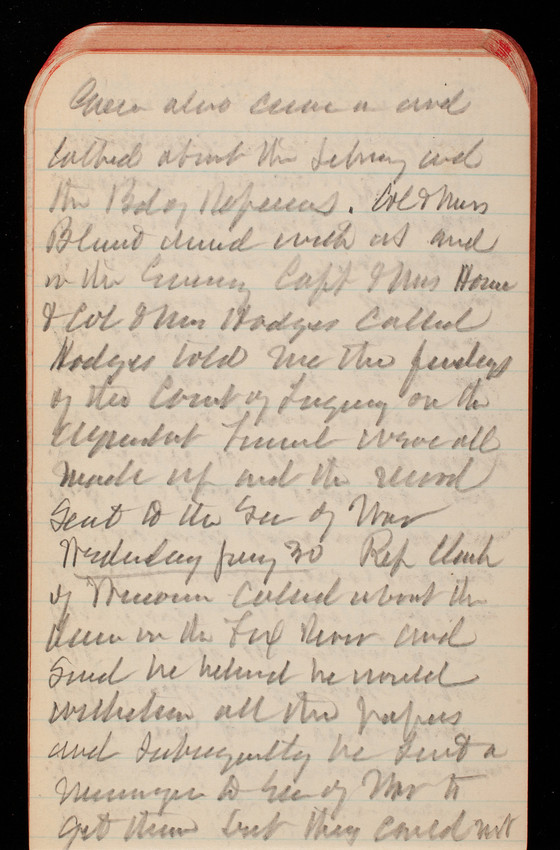 also came in and
talked about the Library and
the Bd of Referees. Col & Mrs
Blunt dined with us and
in the Evening Capt & Mrs
& Col & Mrs Hodges called
Hodges told me the findings
of the Court of Inquiry on the
Aqueduct Tunnel were all
made up and the record
sent to the Sec of War
Wednesday Jany 30 Rep Clark
of called about the
in the Fox River and
said he believed he would
withdraw all the papers
and subsequently he sent a
messenger to Sec of War to
get them but they could not